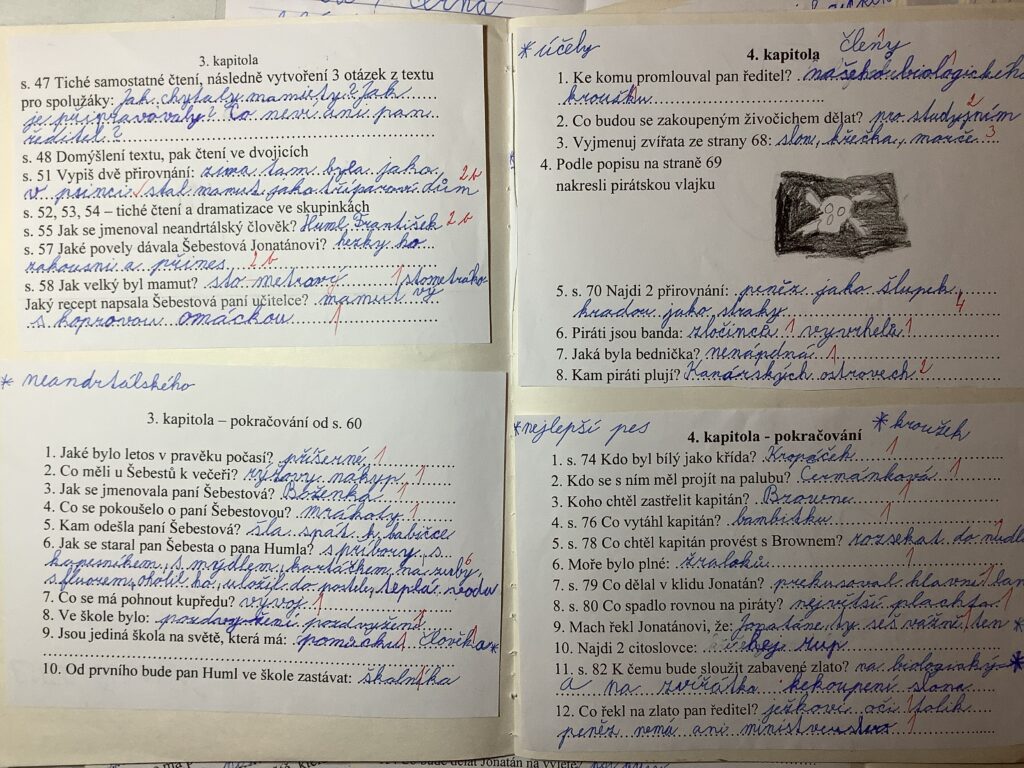 černá
3. kapitola
s. 47 Tiché samostatné čtení, následně vytvoření 3 otázek z textu
pro spolužáky: Jak chytaly mamuty? Jak
je připravovaly? Co neví ani pan
ředitel?
s. 48 Domýšlení textu, pak čtení ve dvojicích
s. 51 Vypiš dvě přirovnání: zima tam byla jako 2b
v psinci, stál mamut jako tříparový dům
s. 52, 53, 54 – tiché čtení a dramatizace ve skupinkách
s. 55 Jak se jmenoval neandrtálský člověk? Huml František 2b
s. 57 Jaké povely dávala Šebestová Jonatánovi? hezky ho
zakousni a přines 2b
s. 58 Jak velký byl mamut? sto metrový 1 stometráko
Jaký recept napsala Šebestová paní učitelce? mamut vy
s koprovou omáčkou 1
* neandrtálského
3. kapitola – pokračování od s. 60
1. Jaké bylo letos v pravěku počasí? příšerné 1
2. Co měli u Šebestů k večeři? rýžový nákyp 1
3. Jak se jmenovala paní Šebestová? Boženka 1
4. Co se pokoušelo o paní Šebestovou? mrákoty 1
5. Kam odešla paní Šebestová? šla spát k babičce
6. Jak se staral pan Šebesta o pana Humla? s příbory s
kapesníkem, s mýdlem, kartáčkem na zuby, 6
s fluorem, oholil ho, uložil do postele, teplá voda
7. Co se má pohnout kupředu? vývoj 1
8. Ve škole bylo: pozdvyžení pozdvyžení 1
9. Jsou jediná škola na světě, která má: pomůcku 1 člověka *
10. Od prvního bude pan Huml ve škole zastávat: školníka
* účely
4. kapitola členy 1
1. Ke komu promlouval pan ředitel? našeho biologického 1
kroužku
2. Co budou se zakoupeným živočichem dělat? pro studyjním 2
3. Vyjmenuj zvířata ze strany 68: slon, křečka, morče 3
4. Podle popisu na straně 69
nakresli pirátskou vlajku
5. s. 70 Najdi 2 přirovnání: peněz jako šlupek,
kradou jako straky 4
6. Piráti jsou banda: zločinců 1 vyvrhelů 1
7. Jaká byla bednička? nenápdná 1
8. Kam piráti plují? Kanárských ostrovech 2
* nejlepší pes
* kroužek
4. kapitola - pokračování
1. s. 74 Kdo byl bílý jako křída? Kropáček 1
2. Kdo se s ním měl projít na palubu? Čermánková 1
3. Koho chtěl zastřelit kapitán? Browne 1
4. s. 76 Co vytáhl kapitán? bambitku 1
5. s. 78 Co chtěl kapitán provést s Brownem? rozsekat do nudlí
6. Moře bylo plné: žraloků 1
7. s. 79 Co dělal v klidu Jonatán? překusoval hlavní 1 lan
8. s. 80 Co spadlo rovnou na piráty? největší plachta 1
9. Mach řekl Jonatánovi, že: Jonatáne ty seš vážně ten *
10. Najdi 2 citoslovce: hej rup
11. s. 82 K čemu bude sloužit zabavené zlato? na biologický *
a na zvířátka kekoupení slona
12. Co řekl na zlato pan ředitel? ježkovi oči tolik
peněz nemá ani ministvo 1